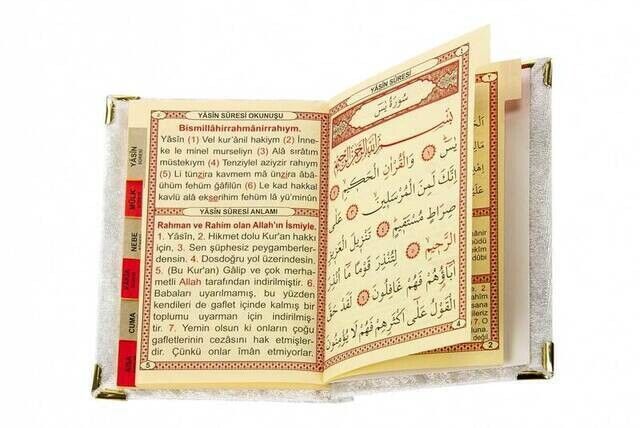 YÂSİN SÛRESİ OKUNUŞU
Bismillâhirrahmânirrahıym.
Yâsîn (1) Vel kur'ânil hakiym (2) İnne-
ke le minel murseliyn (3) Alâ sırâtım
müstekıym (4) Tenziylel aziyzir rahıym
(5) Li tünzira kavmem mâ ünzira âbâ-
ühüm fehüm ğâfilûn (6) Le kad hakkal
kavlü alâ ekserihim fehüm lâ yü'minûn
YÂSÎN SÛRESİ ANLAMI
Rahman ve Rahim olan Allah'ın İsmiyle.
1. Yâsîn, 2. Hikmet dolu Kur'an hakkı
için, 3. Sen şüphesiz peygamberler-
densin. 4. Dosdoğru yol üzerindesin.
5. (Bu Kur'an) Gâlip ve çok merha-
metli Allah tarafından indirilmiştir. 6.
Babaları uyarılmamış, bu yüzden
kendileri de gaflet içinde kalmış bir
toplumu uyarman için indirilmiş-
tir. 7. Yemin olsun ki onların çoğu
gafletlerinin cezasını hak etmişler-
dir. Çünkü onlar îman etmiyorlar.
5
YÂSİN
MÜLK
NEBE
CUMA
YÂSİN SÛRESİ
سُورَةُ يٰسٓ
بِسْمِ اللّٰهِ الرَّحْمٰنِ الرَّحِيمِ
يٰسٓ ﴿١﴾ وَالْقُرْاٰنِ الْحَكِيمِ ﴿٢﴾
اِنَّكَ لَمِنَ الْمُرْسَلِينَ ﴿٣﴾ عَلٰى
صِرَاطٍ مُسْتَقِيمٍ ﴿٤﴾ تَنْزِيلَ الْعَزِيزِ
الرَّحِيمِ ﴿٥﴾ لِتُنْذِرَ قَوْمًا مَا اُنْذِرَ
اٰبَاؤُهُمْ فَهُمْ غَافِلُونَ ﴿٦﴾ لَقَدْ حَقَّ
الْقَوْلُ عَلٰى اَكْثَرِهِمْ فَهُمْ لَا يُؤْمِنُونَ
4
2